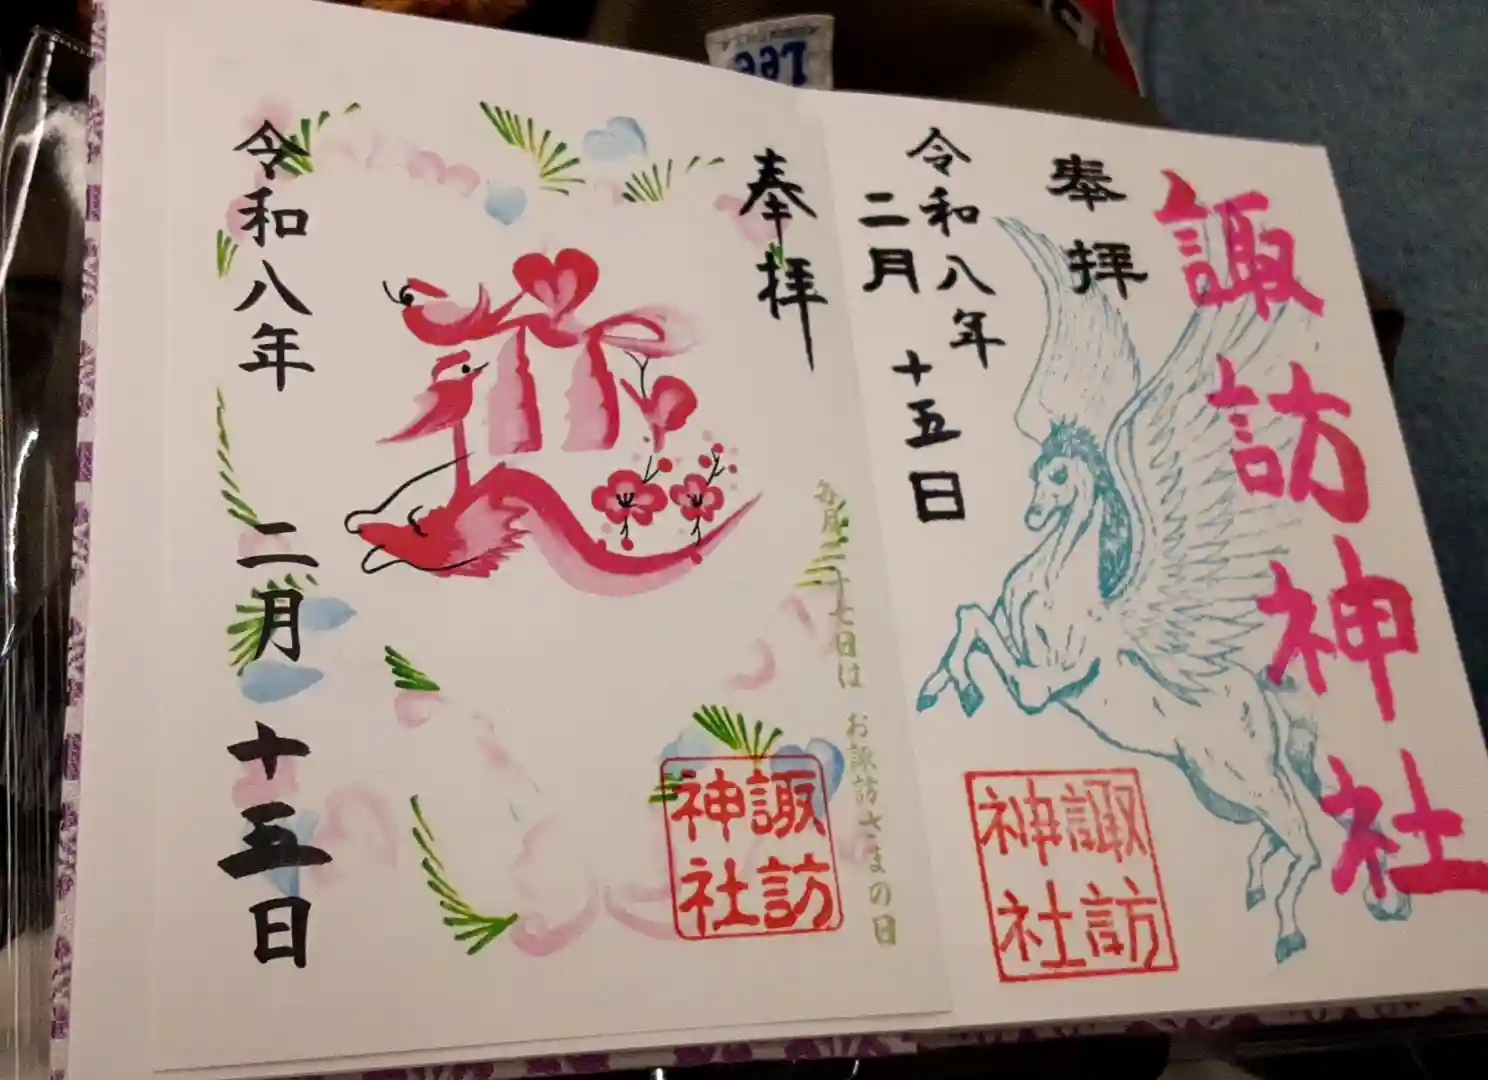 諏訪神社
奉拝
令和八年
二月十五日
諏訪
神社
奉拝
毎月二十七日は お諏訪さまの日
諏訪
神社
令和八年 二月十五日
Lee